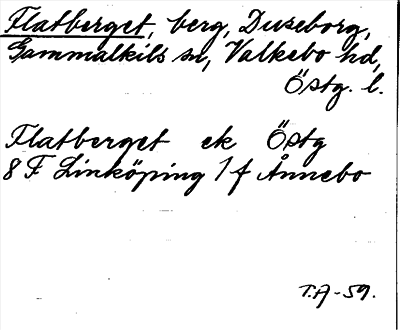 Flatberget, berg, Duseborg,
Gammalkils sn, Valkebo hd,
Östg. l.
Flatberget ek Östg
8 F Linköping 1 f Ånnebo
T.A -59.